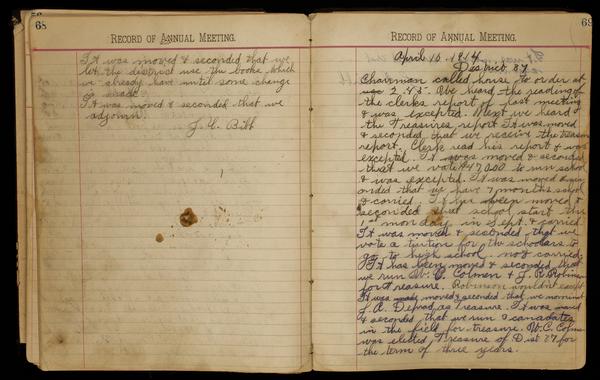 68
RECORD OF ANNUAL MEETING.
It was moved & seconded that we
let the district use the books which
we already have until some change
is made.
It was moved & seconded that we
adjourn.
J. C. Bibb
69
RECORD OF ANNUAL MEETING.
April 10, 1914
District 87
Chairman called house to order at
2.45. We heard the reading of
the clerks report of past meeting
& was excepted. Next we heard
the Treasures report It was moved
& seconded that we receive the treasure
report. Clerk read his report & was
excepted. It was moved & seconded
that we vote $ to run school
& was excepted. It was moved & sec
onded that we have 7 months school
& carried. It has been moved &
seconded that school start the
1st monday in Sept. & carried.
It was moved & seconded that we
vote a tuition for the schoolars to
go to high school. not carried.
It has been moved & seconded that
we run W. C. Colmen & J. R. Robinson
for Treasure. Robinson wouldn't except
It was made moved & seconded that we nominat
J. A. as Treasure. It was
& seconded that we run 2 canadates
in the field for treasure. W. C.
was elected Treasure of Dist 87 for
the term of three years.